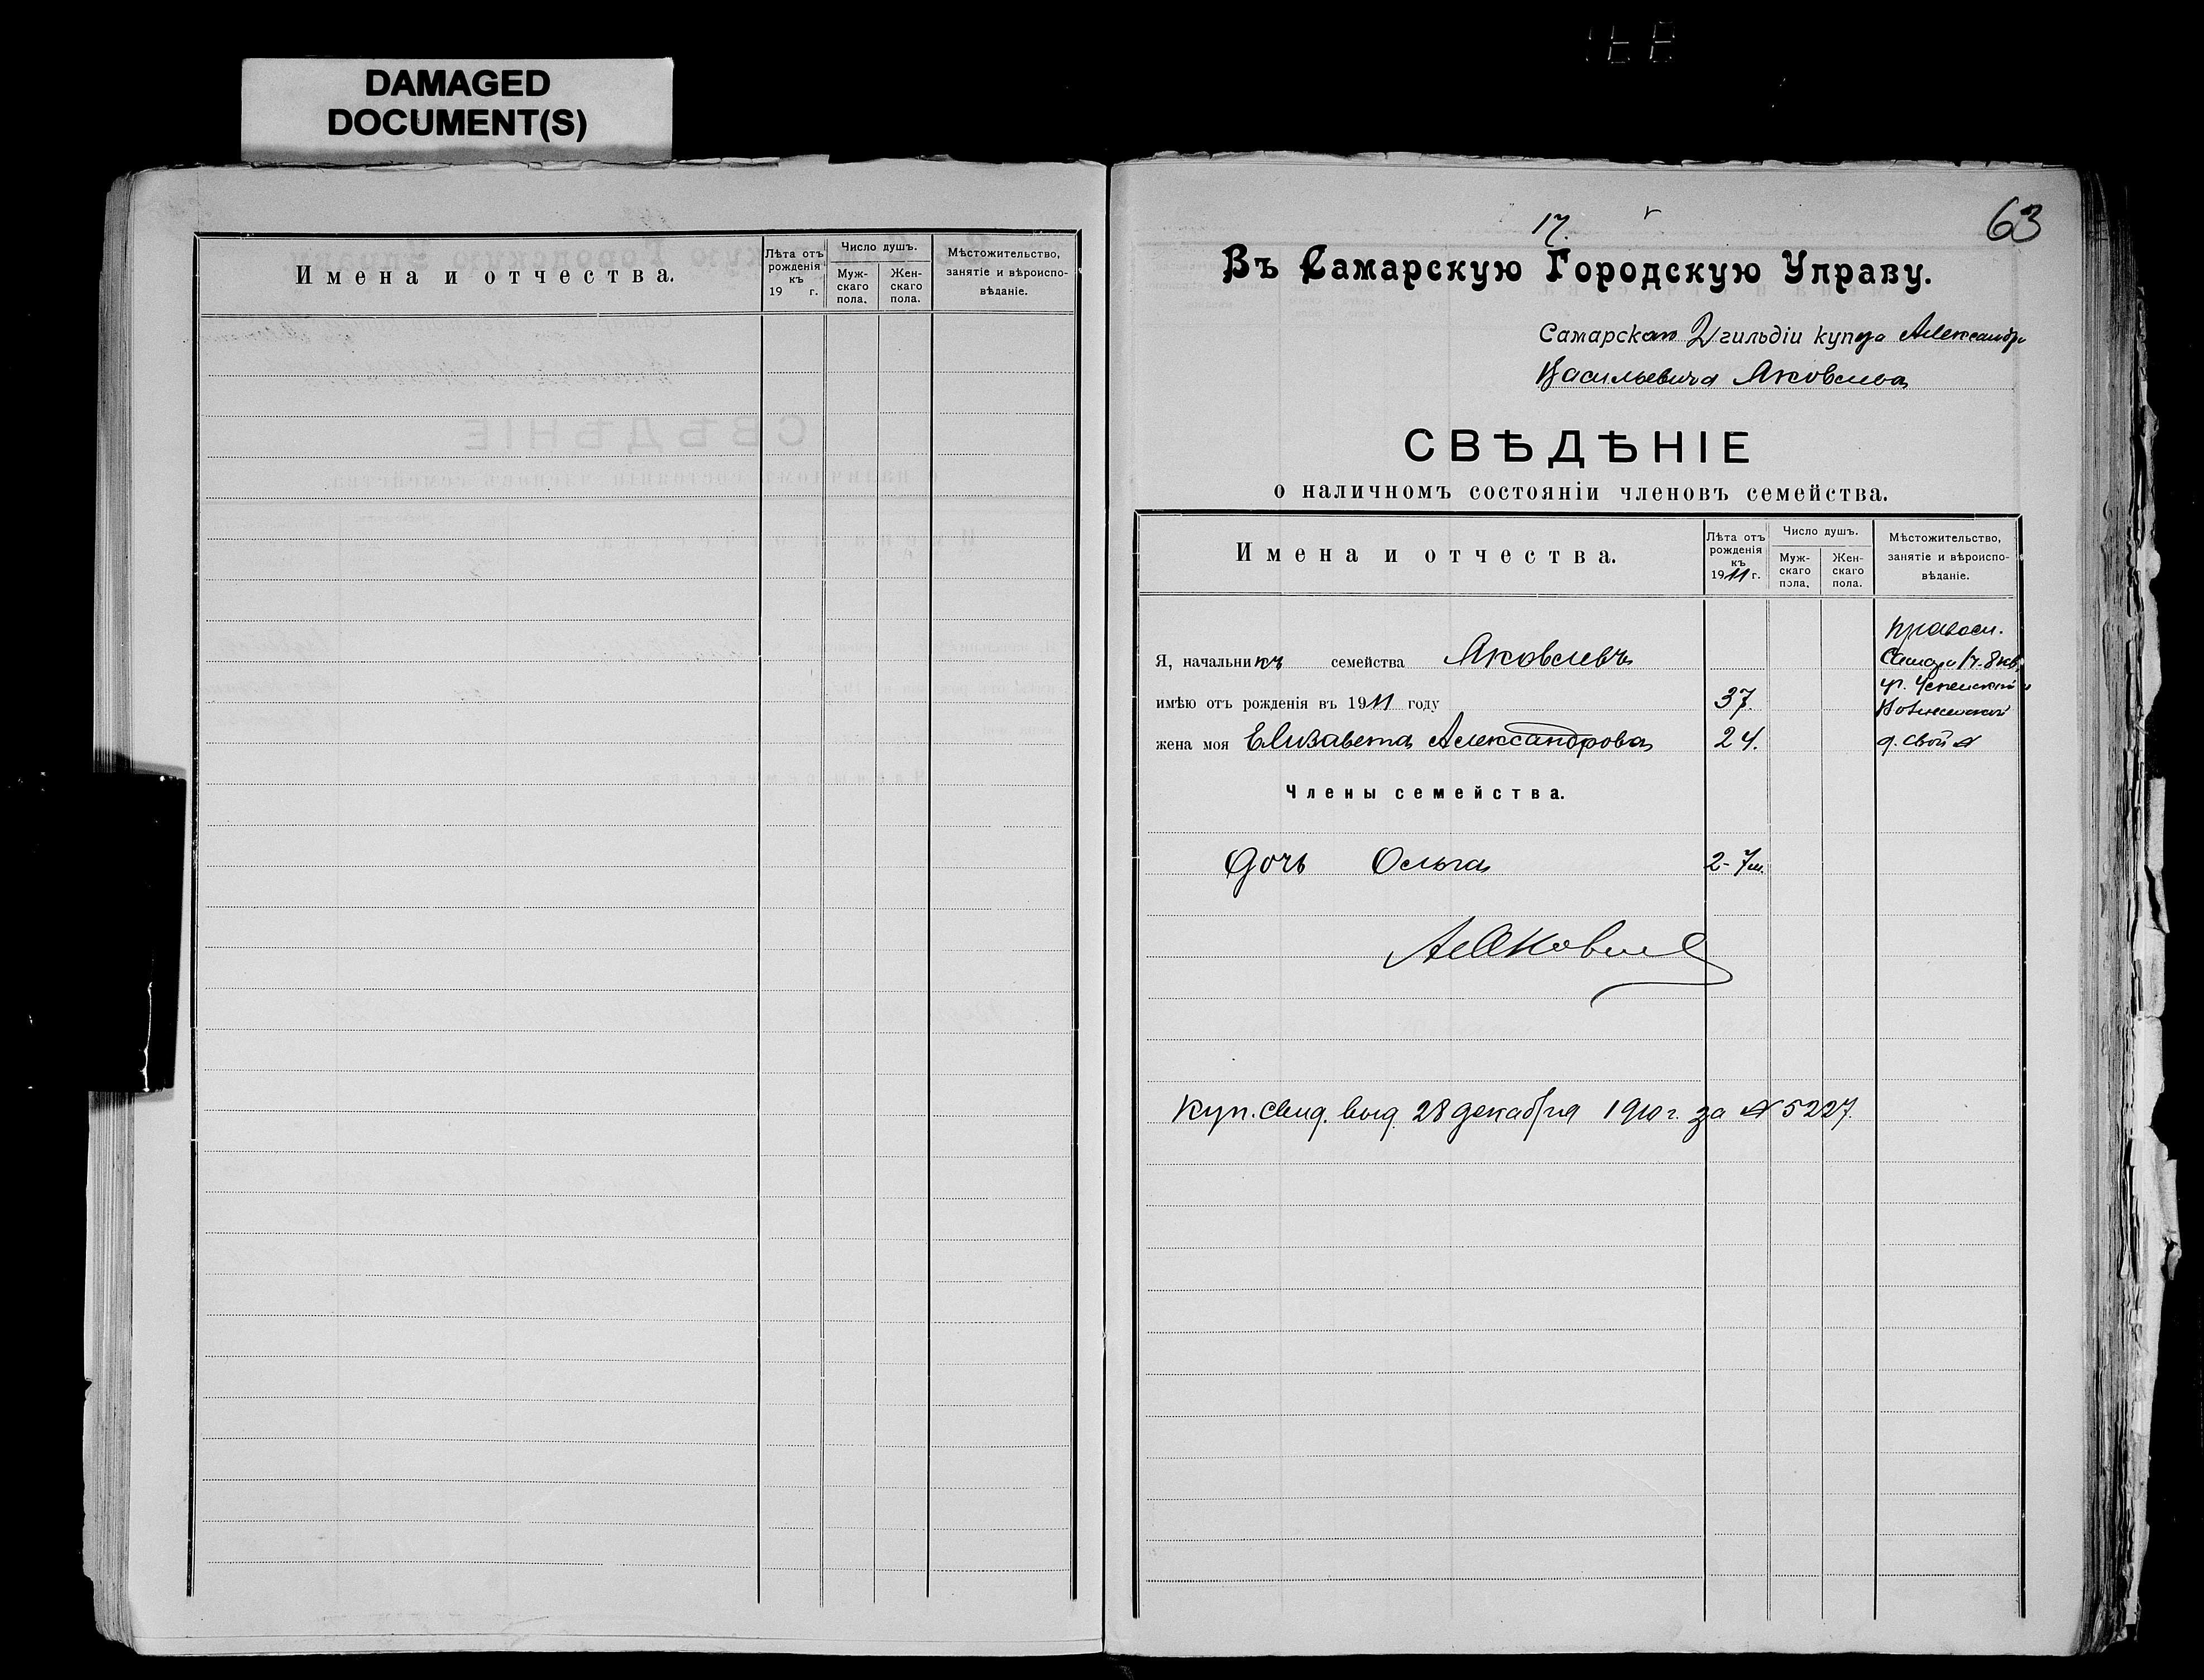 DAMAGED
DOCUMENT(S)
Имена и отчества.
Лѣта отъ рожденія къ 19 г.
Число душъ.
Муж-скаго пола.
Жен-скаго пола.
Мѣстожительство, занятіе и вѣроиспо-вѣданіе.
63
17.
Въ Самарскую Городскую Управу.
Самарскаго 2 гильдіи купца Александра
Васильевича Яковлева
СВѢДѢНІЕ
о наличномъ состояніи членовъ семейства.
Имена и отчества.
Лѣта отъ рожденія къ 1911 г.
Число душъ.
Муж-скаго пола.
Жен-скаго пола.
Мѣстожительство, занятіе и вѣроиспо-вѣданіе.
Правосл.
Я, начальникъ семейства Яковлевъ
Самара
имѣю отъ рожденія въ 1911 году 37.
уг. Успенской и
Вознесенской
жена моя Елизавета Александрова 24.
д. свой №
Члены семейства.
Дочь Ольга 2-7м.
АЯковлев
Куп. свид. выд. 28 декабря 1910 г. за № 5227.